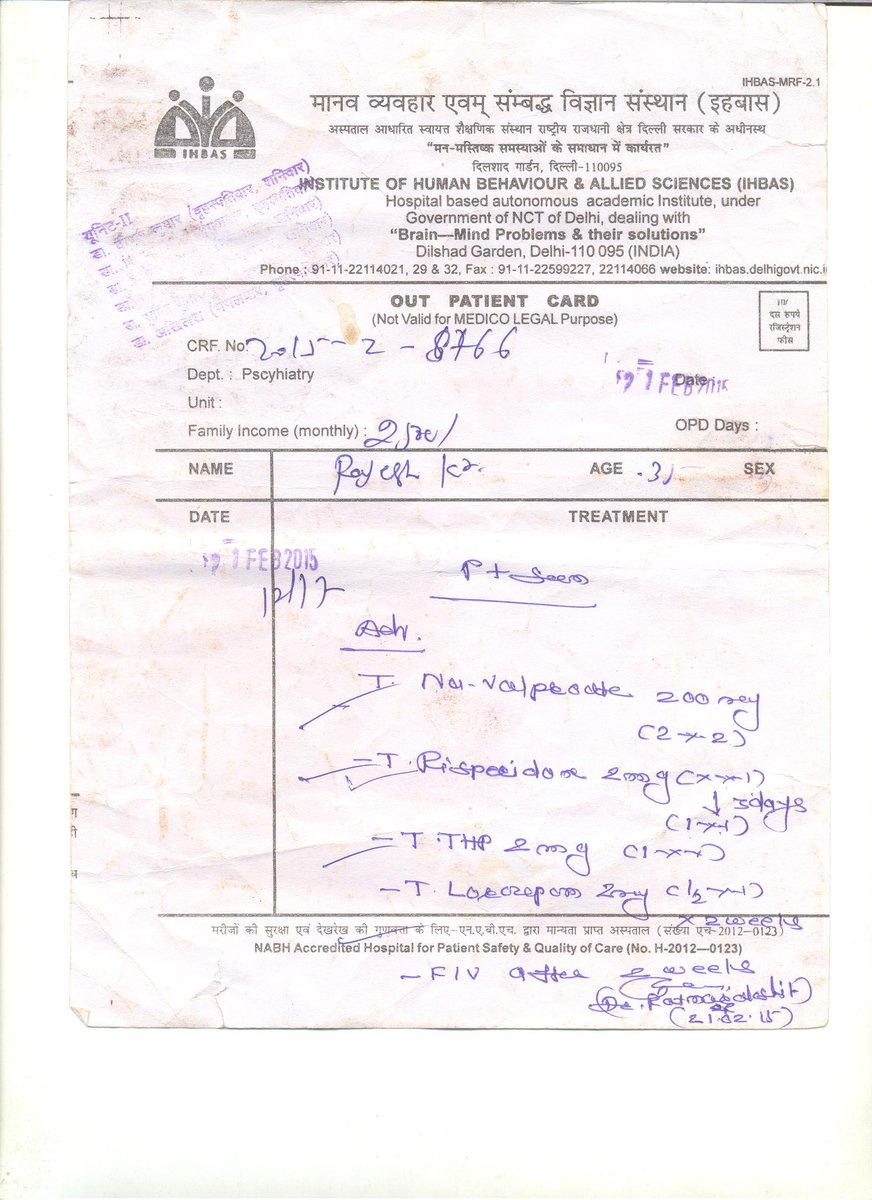 IHBAS-MRF-2.1
मानव व्यवहार एवम् संम्बद्ध विज्ञान संस्थान (इहबास)
अस्पताल आधारित स्वायत्त शैक्षणिक संस्थान राष्ट्रीय राजधानी क्षेत्र दिल्ली सरकार के अधीनस्थ
"मन-मस्तिष्क समस्याओं के समाधान में कार्यरत"
दिलशाद गार्डन, दिल्ली-110095
IHBAS
INSTITUTE OF HUMAN BEHAVIOUR & ALLIED SCIENCES (IHBAS)
Hospital based autonomous academic Institute, under
Government of NCT of Delhi, dealing with
"Brain—Mind Problems & their solutions"
Dilshad Garden, Delhi-110 095 (INDIA)
Phone : 91-11-22114021, 29 & 32, Fax : 91-11-22599227, 22114066 website: ihbas.delhigovt.nic.i
यूनिट-II
OUT PATIENT CARD
(Not Valid for MEDICO LEGAL Purpose)
10/
दस रुपये
रजिस्ट्रेशन
फीस
CRF. No. 2015-2-8766
Dept. : Pscyhiatry
Date :
21 FEB 2015
Unit :
Family Income (monthly) :
OPD Days :
NAME Rajesh Kr. AGE 35 SEX
DATE TREATMENT
21 FEB 2015
Pt seen
Adv.
T. Na-Valproate 200 mg
(2-x-2)
- T. Risperidone 2mg (x-x-1)
↓ 3days
(1-x-1)
- T. THP 2mg (1-x-x)
- T. Lorazepam 2mg (½-x-1)
x 2weeks
मरीजों की सुरक्षा एवं देखरेख की गुणवत्ता के लिए-एन.ए.बी.एच. द्वारा मान्यता प्राप्त अस्पताल (संख्या एच-2012-0123)
NABH Accredited Hospital for Patient Safety & Quality of Care (No. H-2012—0123)
- F/V after 2 weeks
(21.02.15)